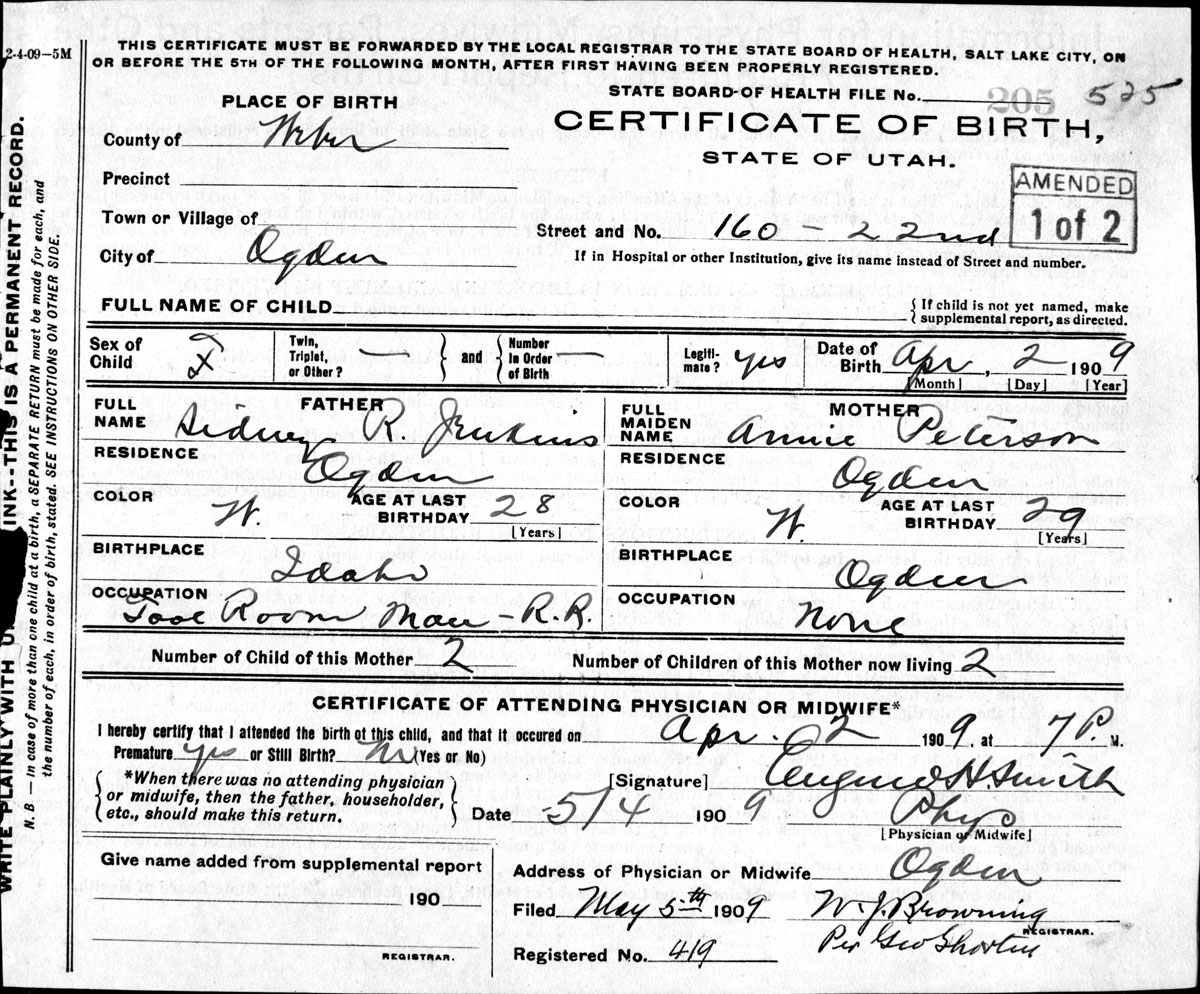 2-4-09—5M
THIS CERTIFICATE MUST BE FORWARDED BY THE LOCAL REGISTRAR TO THE STATE BOARD OF HEALTH, SALT LAKE CITY, ON
OR BEFORE THE 5TH OF THE FOLLOWING MONTH, AFTER FIRST HAVING BEEN PROPERLY REGISTERED.
STATE BOARD OF HEALTH FILE No. 205 525
PLACE OF BIRTH
CERTIFICATE OF BIRTH,
STATE OF UTAH.
County of Weber
Precinct
AMENDED
1 of 2
Town or Village of
Street and No. 160 - 22nd
City of Ogden
If in Hospital or other Institution, give its name instead of Street and number.
FULL NAME OF CHILD
{ If child is not yet named, make
supplemental report, as directed.
Sex of Child F
Twin, Triplet, or Other? — } and { Number in Order of Birth —
Legitimate? yes
Date of Birth Apr, 2 1909
[Month] [Day] [Year]
FATHER
FULL NAME Sidney R. Jenkins
RESIDENCE Ogden
COLOR W. AGE AT LAST BIRTHDAY 28
[Years]
BIRTHPLACE
Idaho
OCCUPATION
Tool Room Man - R.R.
MOTHER
FULL MAIDEN NAME Annie Peterson
RESIDENCE
Ogden
COLOR W. AGE AT LAST BIRTHDAY 29
[Years]
BIRTHPLACE
Ogden
OCCUPATION
None
Number of Child of this Mother 2 Number of Children of this Mother now living 2
CERTIFICATE OF ATTENDING PHYSICIAN OR MIDWIFE*
I hereby certify that I attended the birth of this child, and that it occured on Apr. 2 1909, at 7 P. M.
Premature yes or Still Birth? No (Yes or No)
*When there was no attending physician
or midwife, then the father, householder,
etc., should make this return.
[Signature] Eugene H. Smith
Date 5/4 1909 Phys
[Physician or Midwife]
Give name added from supplemental report
190
REGISTRAR.
Address of Physician or Midwife Ogden
Filed May 5th 1909 W. J. Browning
REGISTRAR.
Per Geo
Registered No. 419
WRITE PLAINLY WITH INK--THIS IS A PERMANENT RECORD.
N. B. — in case of more than one child at a birth, a SEPARATE RETURN must be made for each, and
the number of each, in order of birth, stated. SEE INSTRUCTIONS ON OTHER SIDE.